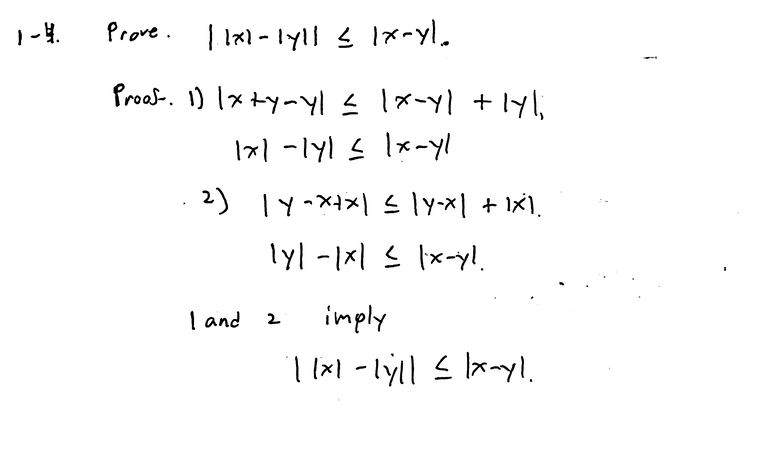 1-4. Prove. ||x|-|y|| ≤ |x-y|.
Proof. 1) |x+y-y| ≤ |x-y| + |y|,
|x| - |y| ≤ |x-y|
2) |y-x+x| ≤ |y-x| + |x|.
|y| - |x| ≤ |x-y|.
1 and 2 imply
||x| - |y|| ≤ |x-y|.